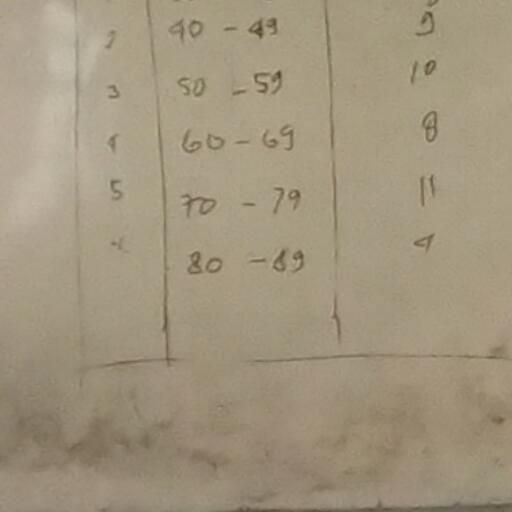 2 40 - 49 9
3 50 - 59 10
4 60 - 69 8
5 70 - 79 11
80 - 89 4